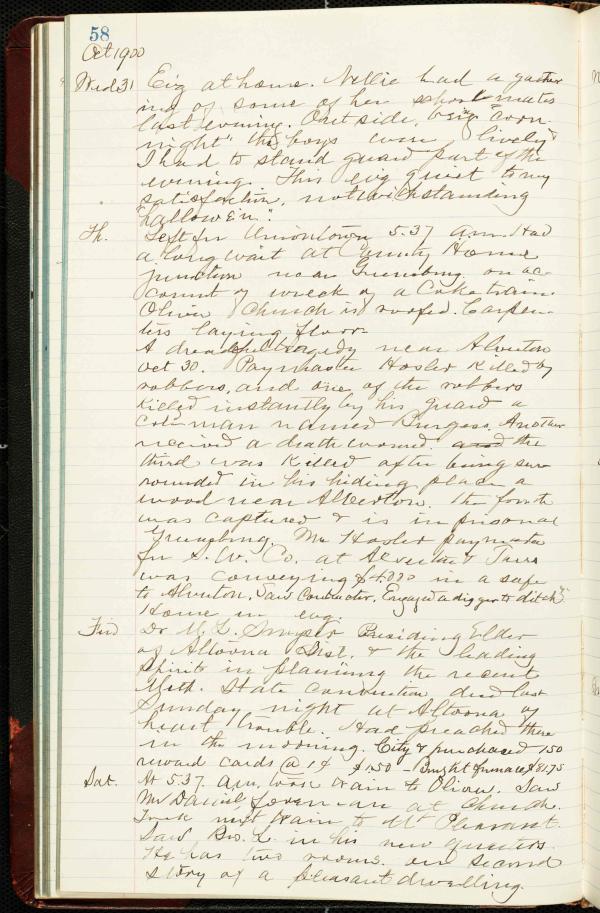 58
Oct 1900
Wed 31 Ev'g at home. Nellie had a gather
ing of some of her school mates
last evening. Outside, being "corn
night" the boys were "lively"
I had to stand guard part of the
evening. This ev'g quiet to my
satisfaction, notwithstanding
"hallowe'en".
Th. Left for Uniontown 5.37 a.m. Had
a long wait at County Home
Junction near Greensburg on ac-
count of wreck of a Coke train.
Oliver Church is roofed. Carpen-
ters laying floor.
A dreadful tragedy near Alverton
Oct 30. Paymaster Hosler killed by
robbers, and one of the robbers
killed instantly by his guard a
man named Burgess. Another
received a death wound. and the
third was killed after being sur
rounded in his hiding place a
wood near Alverton. The fourth
was captured & is in prison at
Greensburg. Mr Hosler paymaster
for S. W. Co. at Alverton & Tarrs
was conveying $4.000 in a safe
to Alverton. Saw Contractor. Engaged a digger to ditch
Home in evg.
Frid Dr M. L. Smyser Presiding Elder
of Altoona Dist. & the leading
spirit in planning the recent
Meth. State Convention died last
Sunday night at Altoona of
heart trouble. Had preached there
in the morning. City & purchased 150
reward cards @ 1¢ $1.50 - Bought furnace $81.75
Sat. At 5.37 a.m. took train to Oliver. Saw
Mr Daniel foreman at Church.
Took next train to Mt Pleasant.
Saw Bro. L. in his new quarters
He has two rooms on second
story of a pleasant dwelling.